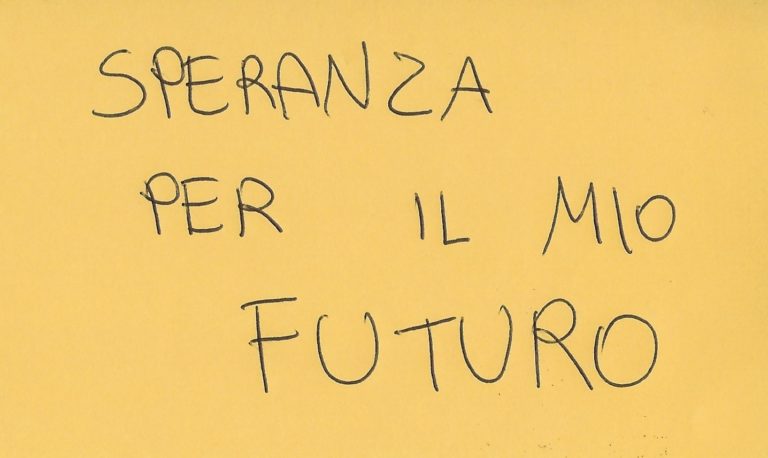 SPERANZA
PER IL MIO
FUTURO